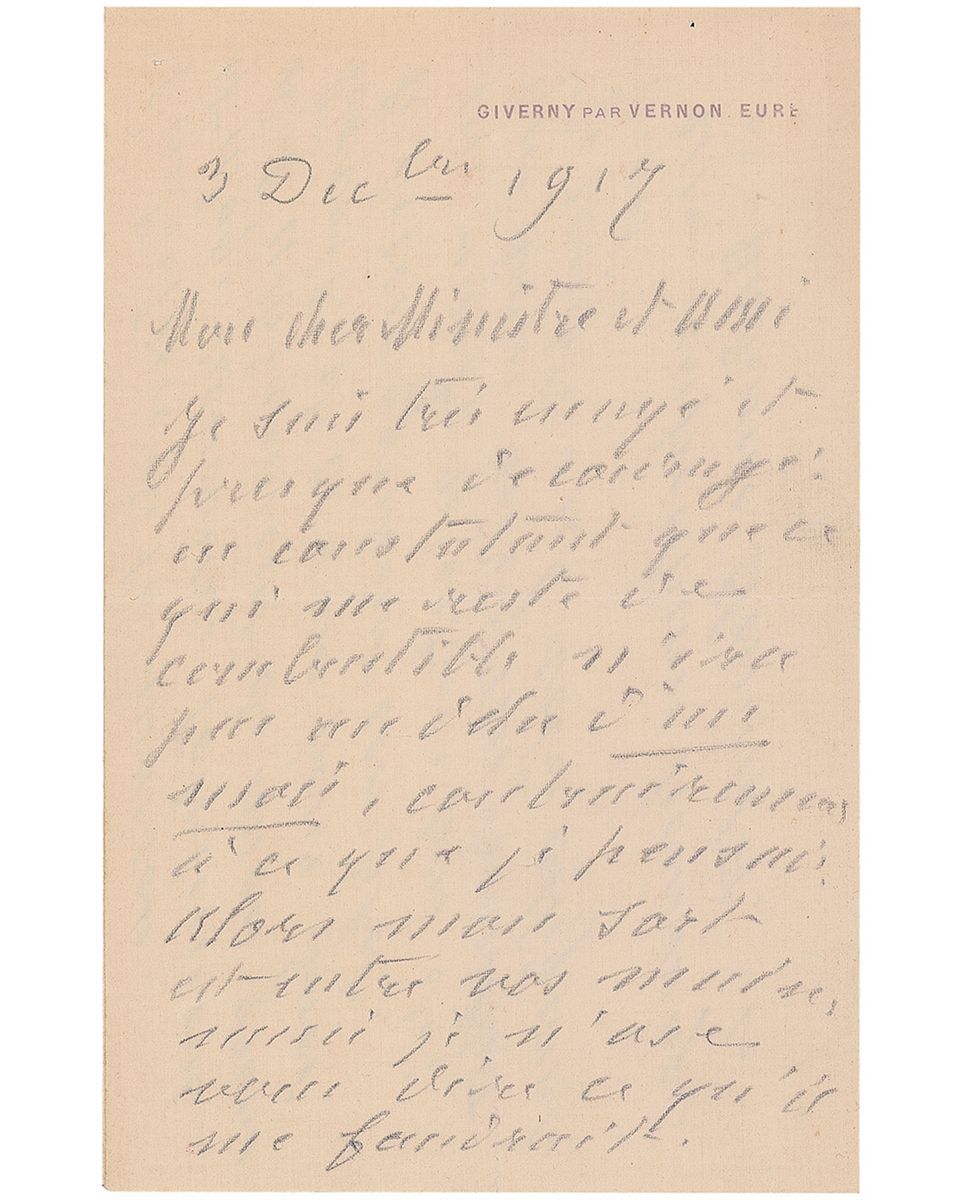 GIVERNY PAR VERNON. EURE
3 Dec bre 1917
Mon cher Ministre et Ami
Je suis très ennuyé et
presque decouragé
en constatant que ce
qui me reste de
combustible n'ira
pas au dela d'un
mois, contrairement
à ce que je pensais
Alors mon sort
est entre vos mains,
mais je n'ose
vous dire ce qu'il
me faudrait.